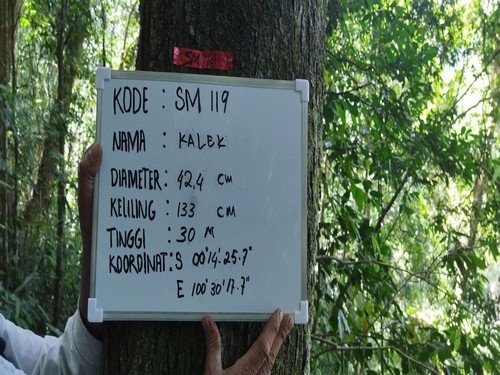 SM 119
KODE : SM 119
NAMA : KALEK
DIAMETER : 42,4 CM
KELILING : 133 CM
TINGGI : 30 M
KOORDINAT : S 00°14'25.7"
E 100°30'17.7"